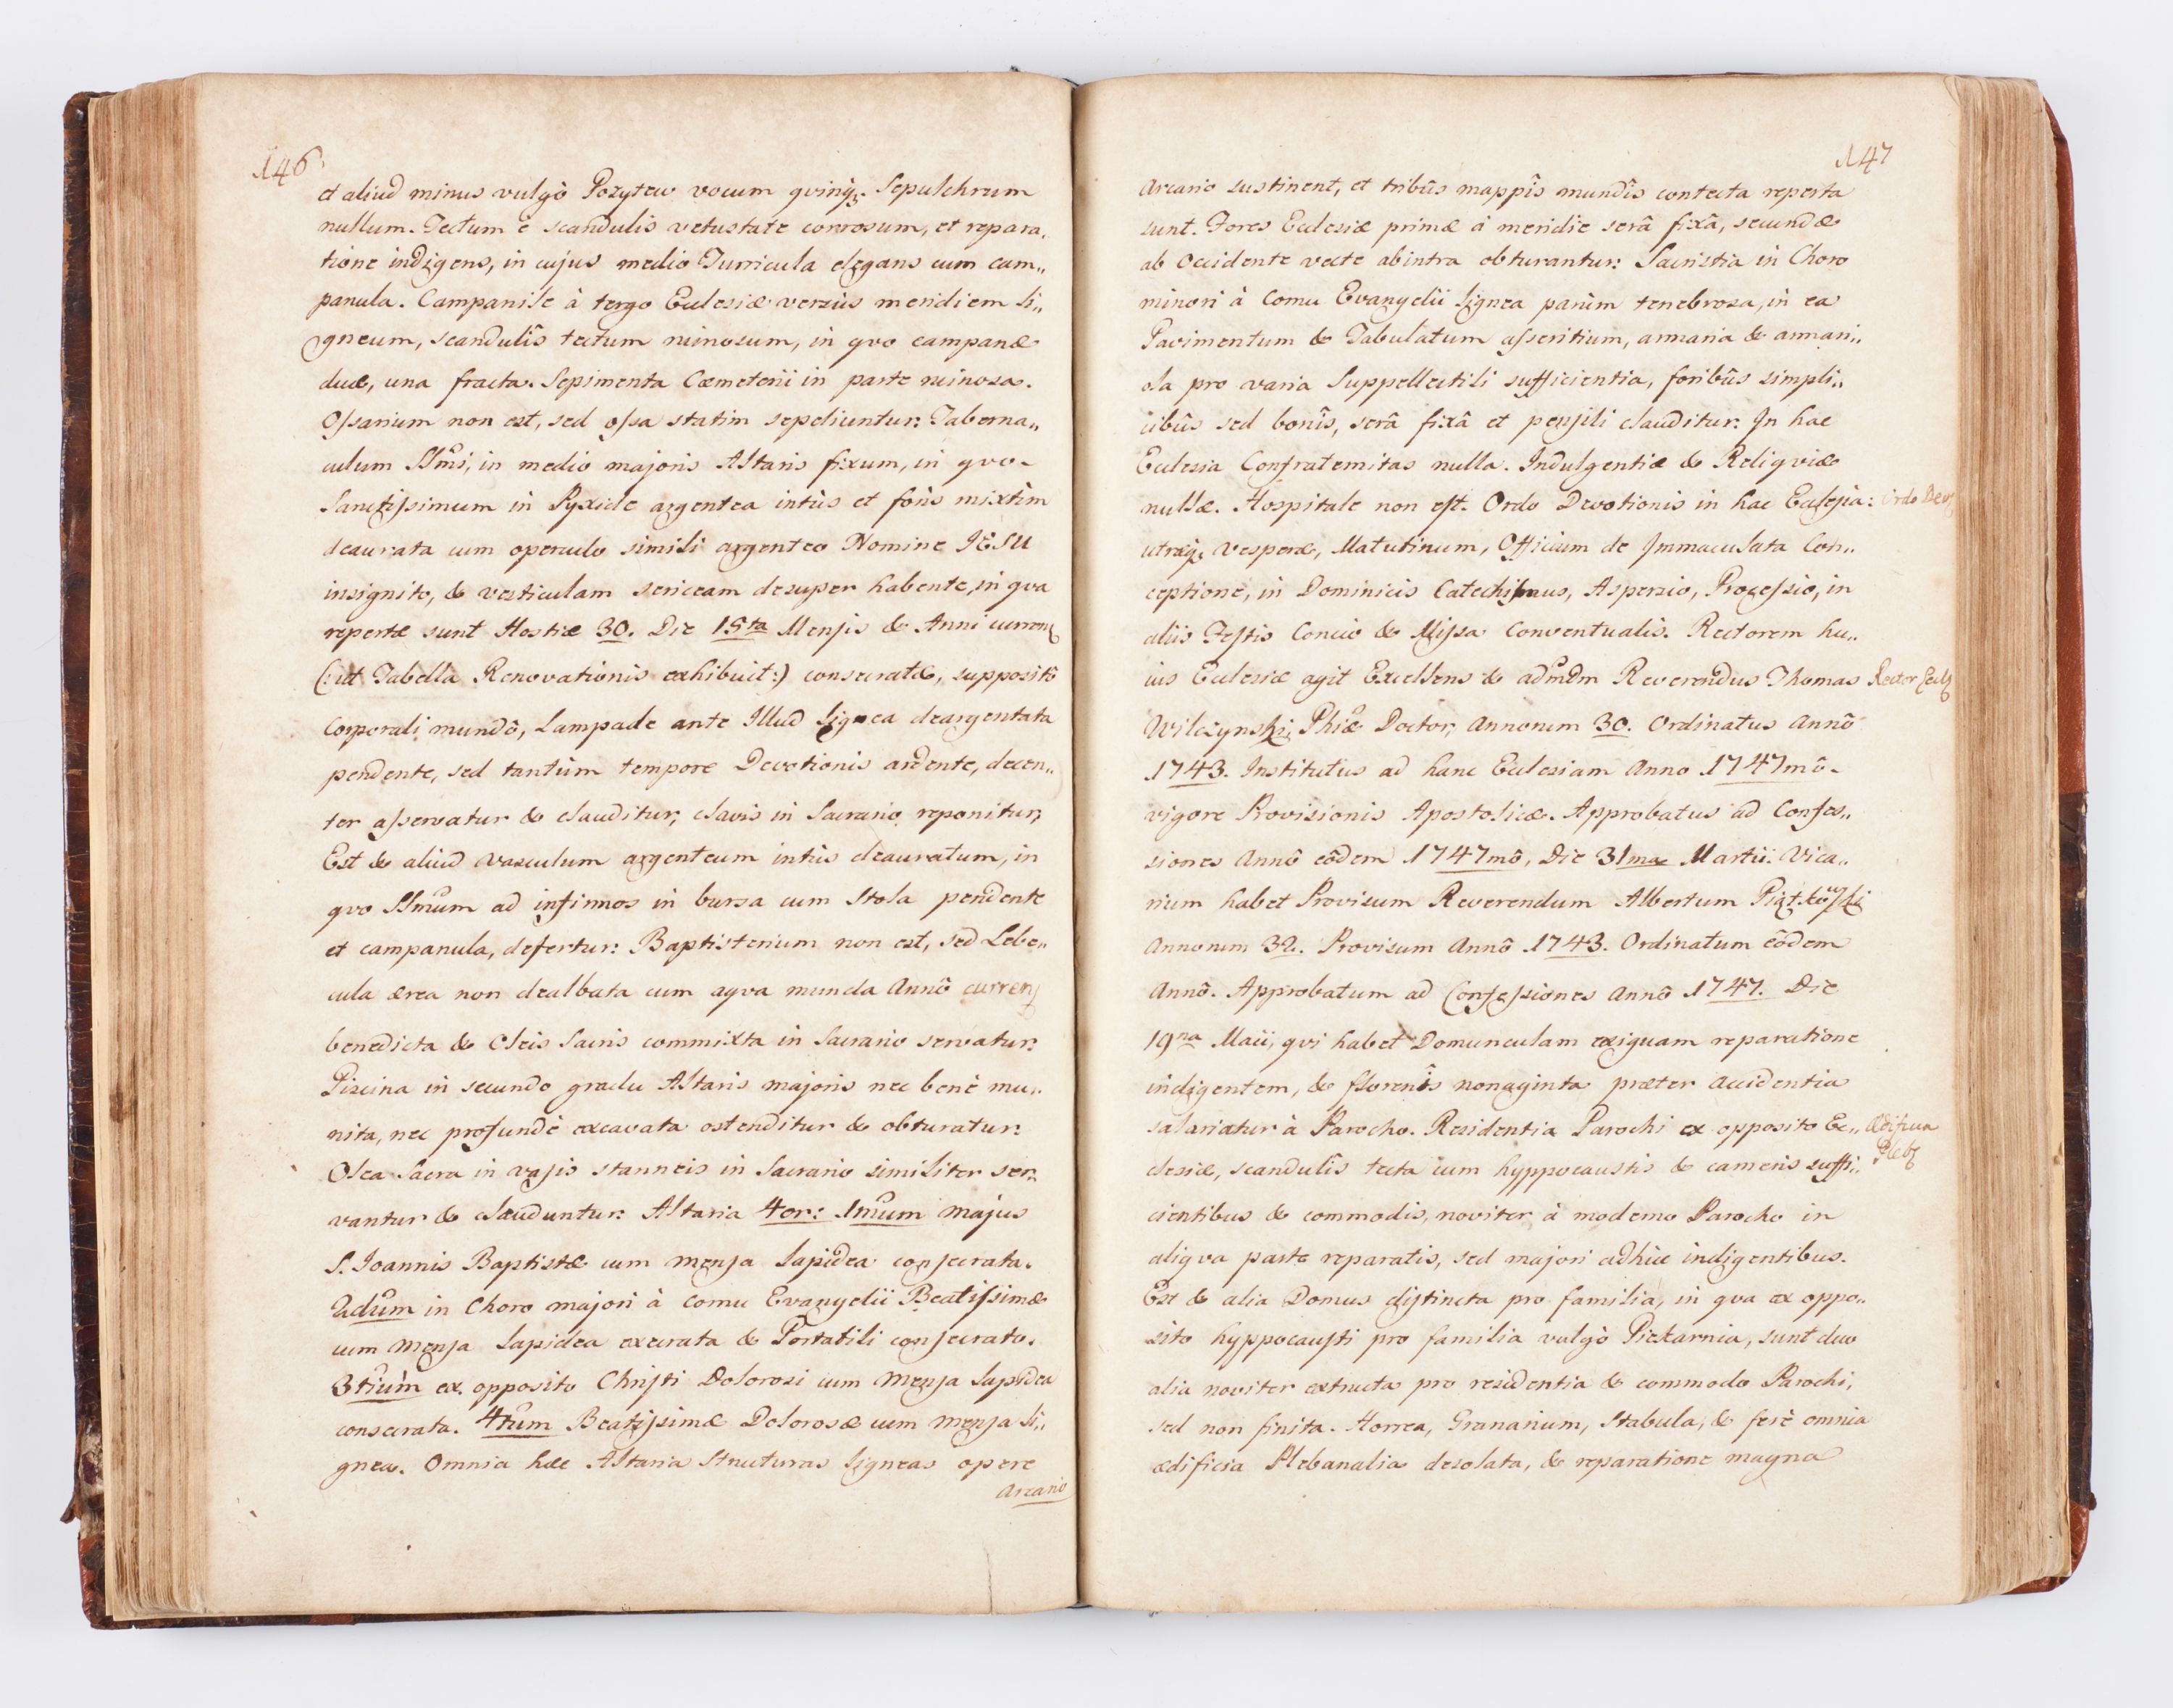 146
et aliud minus vulgò Pozytew vocum qvinq;. Sepulchrum
nullum. Tectum è scandulis vetustate corrosum, et repara„
tione indigens, in cujus medio Turricula elegans cum cam„
panula. Campanile à tergo Ecclesiæ versùs meridiem li„
gneum, scandulîs tectum ruinosum, in qvo campanæ
duæ, una fracta. Sepimenta Cæmeterii in parte ruinosa.
Ossarium non est, sed ossa statim sepeliuntur: Taberna„
culum SSmi, in medio majoris Altaris fixum, in qvo
Sanctissimum in Pyxide argentea intùs et forìs mixtìm
deaurata cum operculo simili argenteo Nomine JESU
insignito, & vesticulam sericeam desuper habente, in qva
repertæ sunt Hostiæ 30. Die 15ta Mensis & Anni curren
(: ut Tabella Renovationis exhibuit:) consecratæ, suppositô
Corporali mundô, Lampade ante Illud lignea deargentata
pendente, sed tantùm tempore Devotionis ardente, decen„
ter asservatur & clauditur, clavis in Sacrario reponitur,
Est & aliud vasculum argenteum intùs deauratum, in
qvo SSmum ad infirmos in bursa cum Stola pendente
et campanula, defertur: Baptisterium non est, sed Lebe„
cula ærea non dealbata cum aqva munda Annô curren
benedicta & Oleis Sacris commixta in Sacrario servatur:
Piscina in secundo gradu Altaris majoris nec benè mu„
nita, nec profundè excavata ostenditur & obturatur:
Olea Sacra in vasis stanneis in Sacrario similiter ser„
vantur & clauduntur: Altaria 4or: 1mum majus
S. Joannis Baptistæ cum mensa lapidea consecrata.
2dum in Choro majori à Cornu Evangelii Beatissimæ
cum mensa lapidea execrata & Portatili consecrato.
3tium ex opposito Christi Dolorosi cum Mensa lapidea
consecrata. 4tum Beatissimæ Dolorosæ cum mensa li„
gnea. Omnia hæc Altaria Structuras ligneas opere
Arcario
147
Arcario sustinent, et tribûs mappîs mundîs contecta reperta
sunt. Fores Ecclesiæ primæ à meridie serâ fixâ, secundæ
ab Occidente vecte abintra obturantur: Sacristia in Choro
minori à Cornu Evangelii lignea parùm tenebrosa, in ea
Pavimentum & Tabulatum asseritium, armaria & armari„
ola pro varia Suppellectili sufficientia, foribûs simpli„
cibûs sed bonîs, serâ fixâ et pensili clauditur: In hac
Ecclesia Confraternitas nulla. Indulgentiæ & Reliqviæ
nullæ. Hospitale non est. Ordo Devotionis in hac Ecclesia: Ordo Dev
utræq; Vesperæ, Matutinum, Officium de Immaculata Con„
ceptione, in Dominicis Catechismus, Aspersio, Processio, in
aliis Festis Concio & Missa Conventualis. Rectorem hu„
ius Ecclesiæ agit Excellens & admdm Reverendus Thomas Rector Eccl
Wilczynski, Phiæ Doctor, Annorum 30. Ordinatus Annô
1743. Institutus ad hanc Ecclesiam Anno 1747mô
vigore Provisionis Apostolicæ. Approbatus ad Confes„
siones Annô eôdem 1747mô, Die 31ma Martii. Vica„
rium habet Provisum Reverendum Albertum Piątkowski
Annorum 32. Provisum Annô 1743. Ordinatum eôdem
Annô. Approbatum ad Confessiones Annô 1747. Die
19na Maii, qvi habet Domunculam exiguam reparatione
indigentem, & florenîs nonaginta præter Accidentia
salariatur à Parocho. Residentia Parochi ex opposito Ec„ Ædificia
clesiæ, scandulîs tecta cum hyppocaustis & cameris suffi„ Pleb
cientibus & commodis, noviter à moderno Parocho in
aliqva parte reparatis, sed majori adhùc indigentibus.
Est & alia Domus distincta pro familia, in qva ex oppo„
sito hyppocausti pro familia vulgò Piekarnia, sunt duo
alia noviter extructa pro residentia & commodo Parochi,
sed non finita. Horrea, Granarium, Stabula, & ferè omnia
ædificia Plebanalia desolata, & reparatione magna